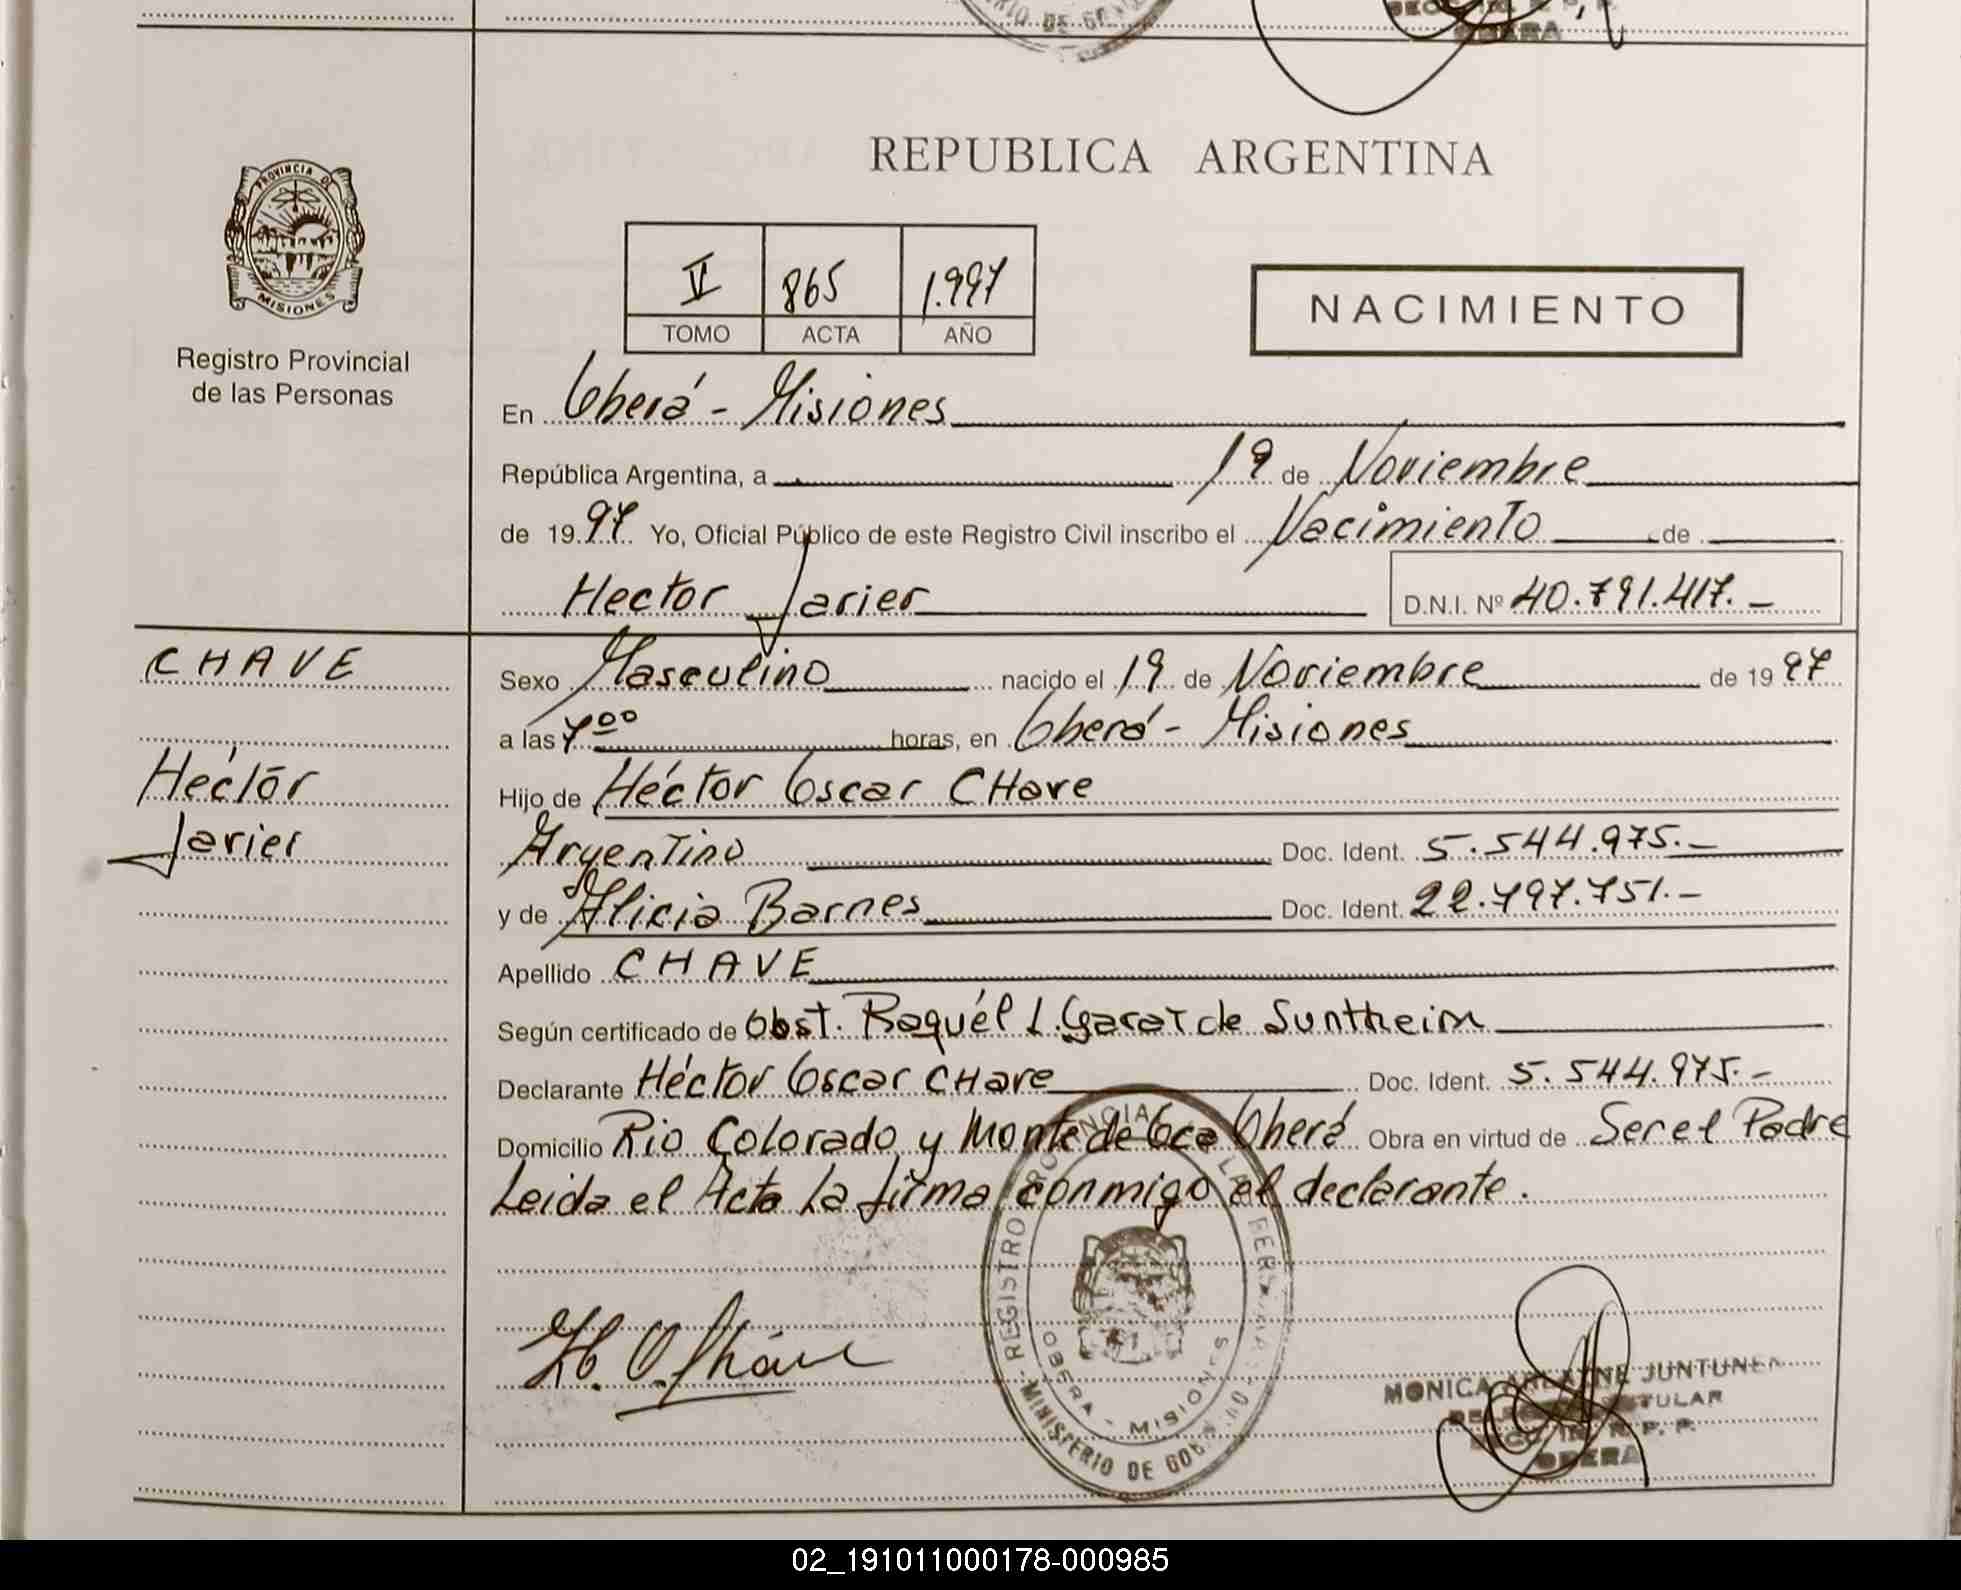 REPUBLICA ARGENTINA
PROVINCIA DE
MISIONES
Registro Provincial
de las Personas
V 865 1.997
TOMO ACTA AÑO
NACIMIENTO
En Oberá - Misiones
República Argentina, a 19 de Noviembre
de 1997 Yo, Oficial Público de este Registro Civil inscribo el Nacimiento de
Hector Javier D.N.I. Nº 40.791.417.-
CHAVE
Héctor
Javier
Sexo Masculino nacido el 19 de Noviembre de 1997
a las 7 00 horas, en Oberá - Misiones
Hijo de Héctor Oscar CHave
Argentino Doc. Ident. 5.544.975.-
y de Alicia Barnes Doc. Ident. 22.797.751.-
Apellido CHAVE
Según certificado de Obst. Raquél L. Garat de Suntheim
Declarante Héctor Oscar CHave Doc. Ident. 5.544.975.-
Domicilio Rio Colorado y Monte de Oca Oberá Obra en virtud de Ser el Padre
Leida el Acta La firma conmigo el declarante.
H. O. Cháve
REGISTRO PROVINCIAL DE LAS PERSONAS
OBERA - MISIONES
MINISTERIO DE GOBIERNO
MONICA JUNTUNEN
TITULAR
R. P. P.
OBERA
02_191011000178-000985